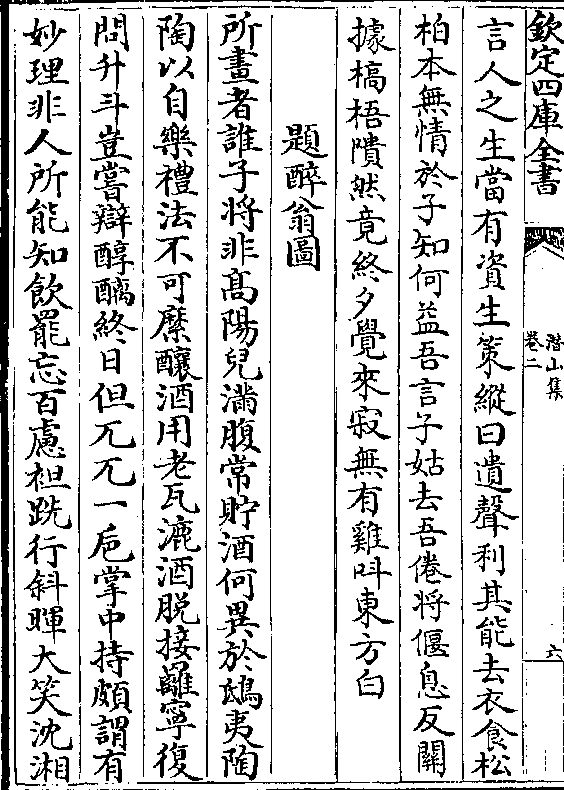 欽定四庫全書
潛山集
卷二
六
言人之生當有資生策縱曰遺聲利其能去衣食松
柏本無情於子知何益吾言子姑去吾倦將偃息反關
據槁梧隤然竟終夕覺來寂無有雞呌東方白
題醉翁圖
所畫者誰子將非髙陽兒滿腹常貯酒何異於鴟夷陶
陶以自樂禮法不可縻釀酒用老瓦漉酒脱接䍦寧復
問升斗豈嘗辯醇醨終日但兀兀一巵掌中持頗謂有
妙理非人所能知飲罷忘百慮袒跣行斜暉大笑沈湘